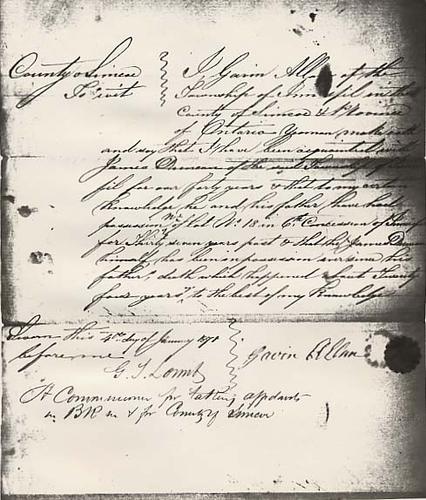 County of Simcoe
To wit
I Gavin Allan of the
Township of Innisfil in the
County of Simcoe & Province
of Ontario Yeoman make oath
and say that I have been acquainted with
James Duncan of the said Township of Innis
fil for over forty years & that to my certain
knowledge he and his father, have had
possession of lot No. 18 in 6th Concession of Innisfil
for Thirty seven years past & that the James Duncan
himself has been in possession ever since his
father's death which happened about Twenty
four years, to the best of my Knowledge
Sworn this 4th day of January 187
before me
Gavin Allan
G. J. Lount
A Commissioner for taking affidavits
in BR in & for County of Simcoe